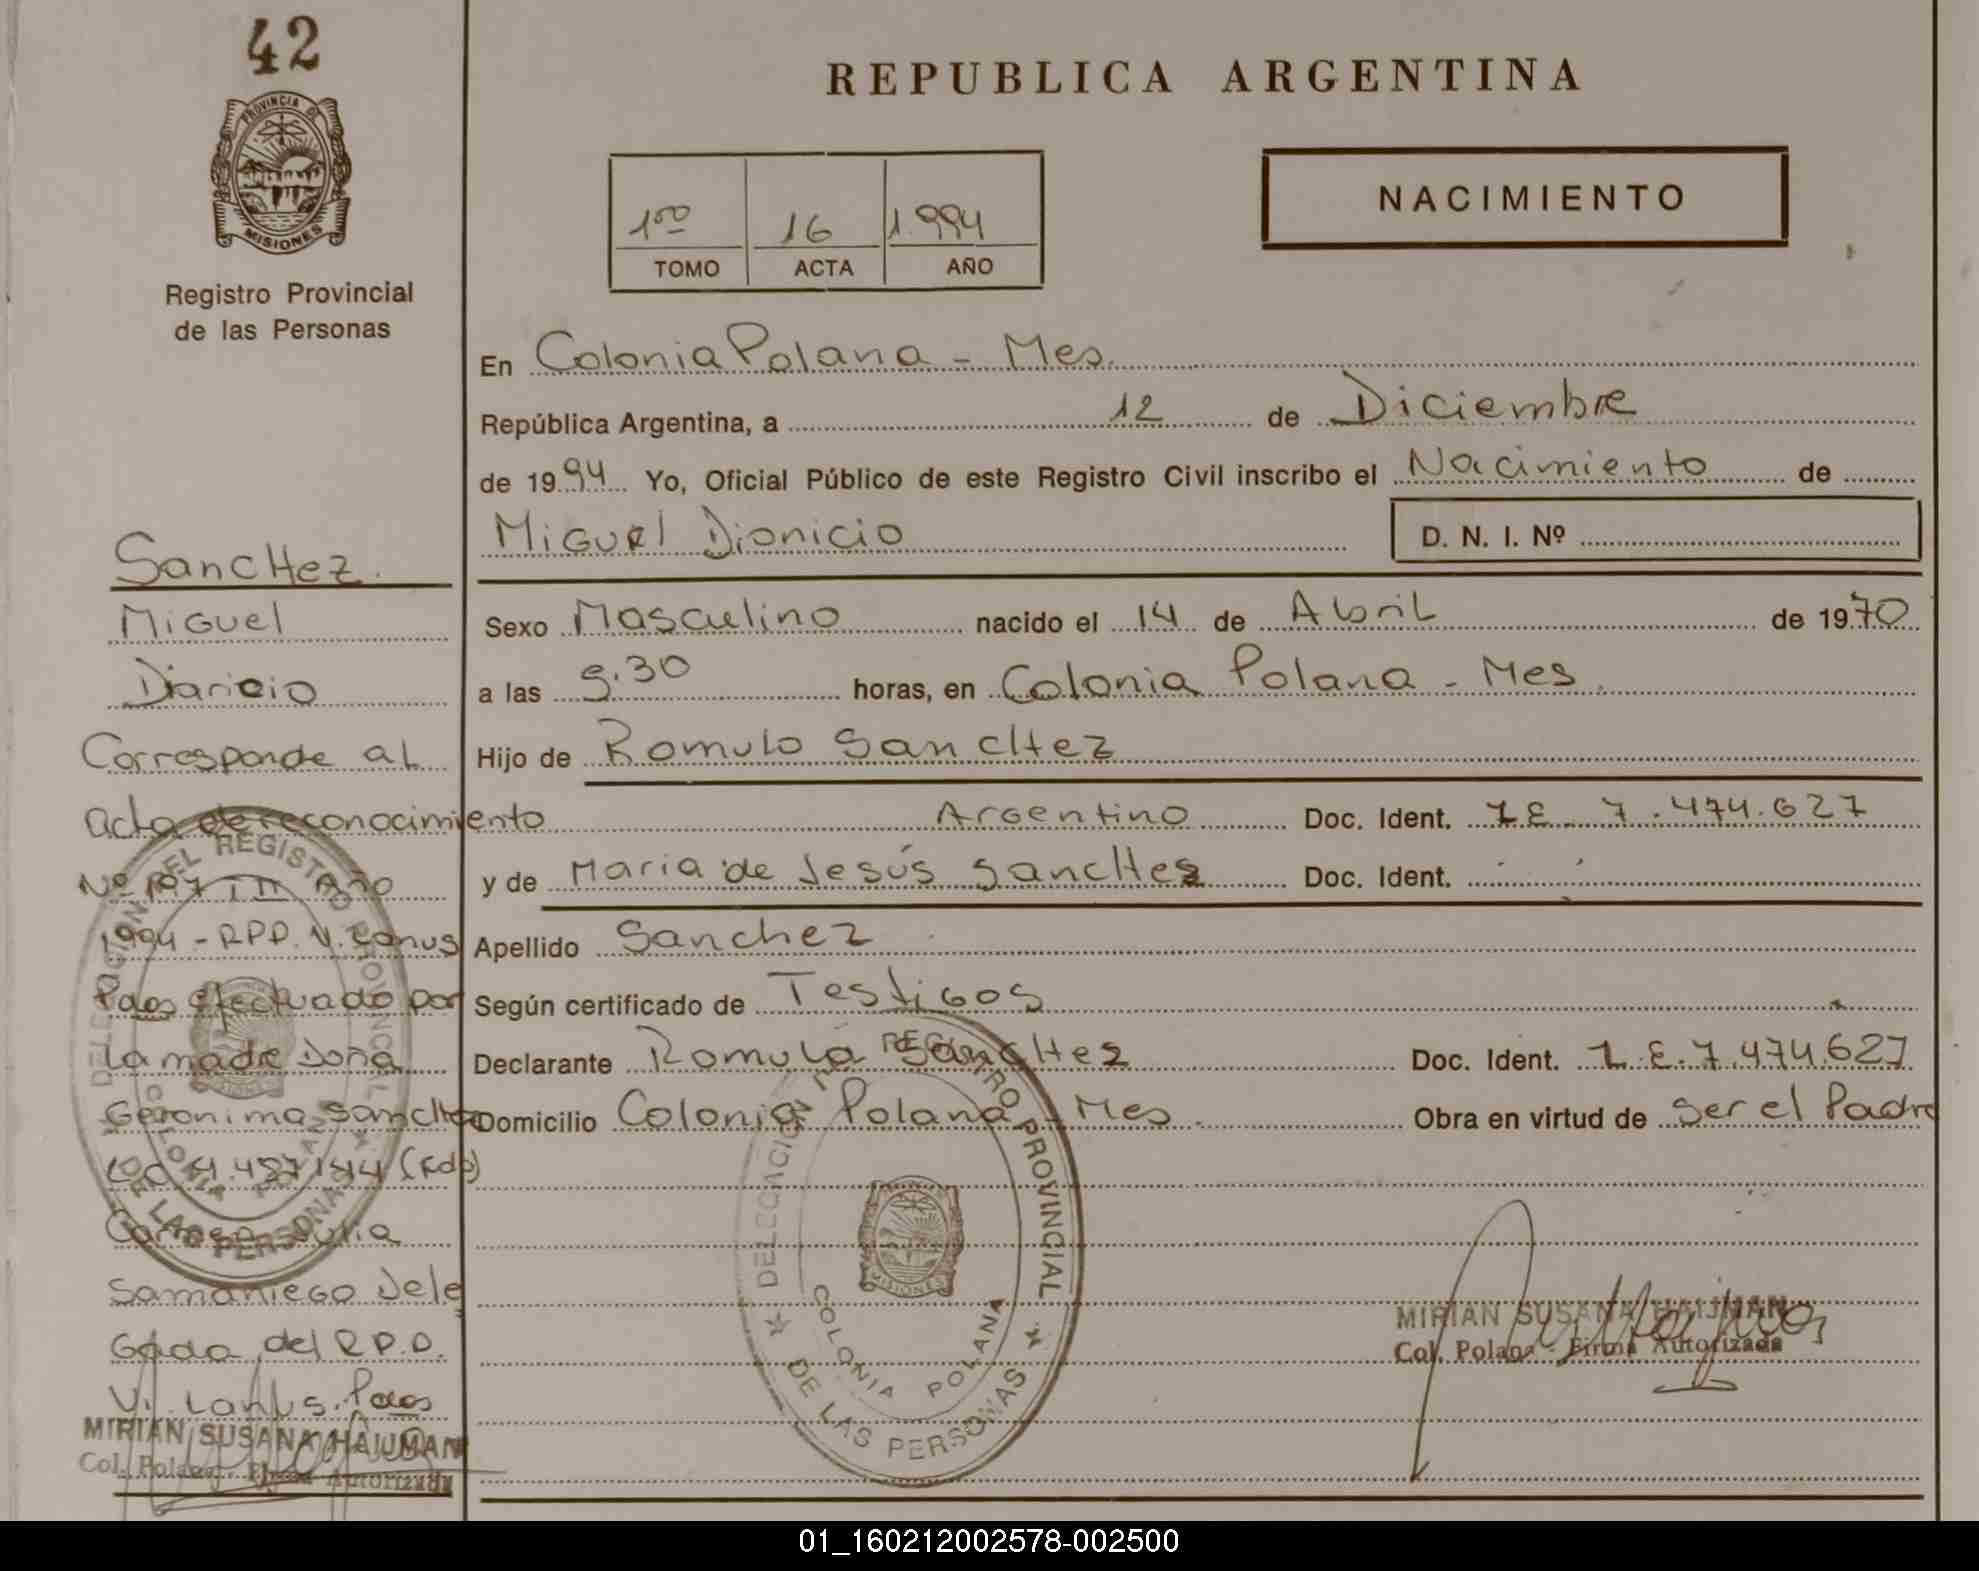 42
PROVINCIA DE
MISIONES
Registro Provincial
de las Personas
REPUBLICA ARGENTINA
1ro 16 1.994
TOMO ACTA AÑO
NACIMIENTO
En Colonia Polana - Mes.
República Argentina, a 12 de Diciembre
de 1994 Yo, Oficial Público de este Registro Civil inscribo el Nacimiento de
Miguel Dionicio
D. N. I. Nº
Sexo Masculino nacido el 14 de Abril de 1970
a las 5.30 horas, en Colonia Polana - Mes.
Hijo de Romulo Sanchez
Argentino Doc. Ident. L.E. 7.474.627
y de Maria de Jesús Sanchez Doc. Ident.
Apellido Sanchez
Según certificado de Testigos
Declarante Romulo Sanchez Doc. Ident. L.E. 7.474.627
Domicilio Colonia Polana - Mes Obra en virtud de Ser el Padre
DELEGACION DEL REGISTRO PROVINCIAL
DE LAS PERSONAS
COLONIA POLANA
MISIONES
MIRIAN SUSANA HAIJMAN
Col. Polana - Firma Autorizada
Sanchez.
Miguel
Dionicio
Corresponde al
acta de reconocimiento
Nº 107 T II Año
1994 - R.P.P. V. Lanus
Pdas efectuado por
la madre Doña
Geronima Sanchez
Julia
Samaniego Dele
gada del R.P.P.
V. Lanus. Pdas
MIRIAN SUSANA HAIJMAN
Col. Polana - Firma Autorizada
DELEGACION DEL REGISTRO PROVINCIAL
DE LAS PERSONAS
COLONIA POLANA
01_160212002578-002500